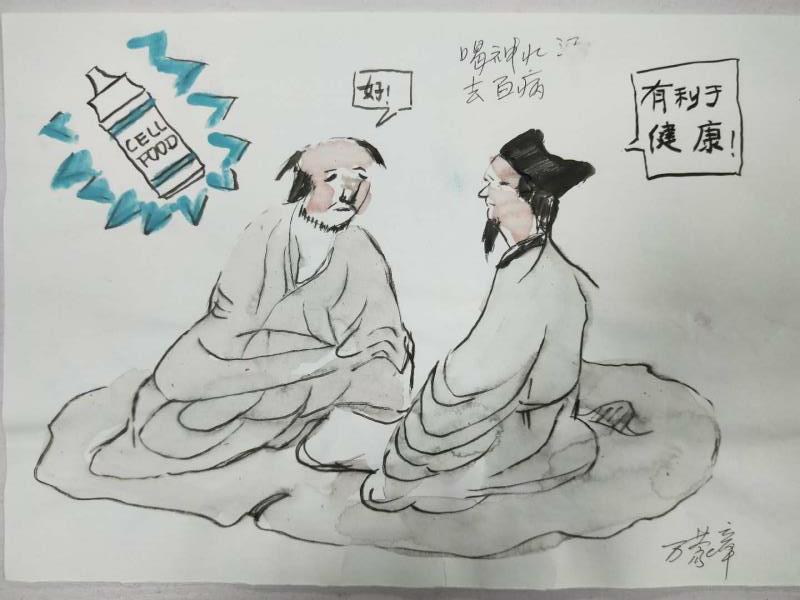 CELL
FOOD
好!
喝神水
去百病
有利于
健康!